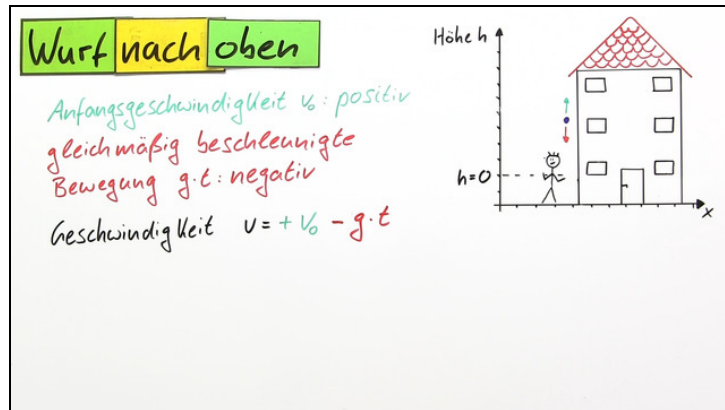 Wurf nach oben
Anfangsgeschwindigkeit v₀: positiv
gleichmäßig beschleunigte
Bewegung g·t: negativ
Geschwindigkeit v = + v₀ - g·t
Höhe h
h=0
x